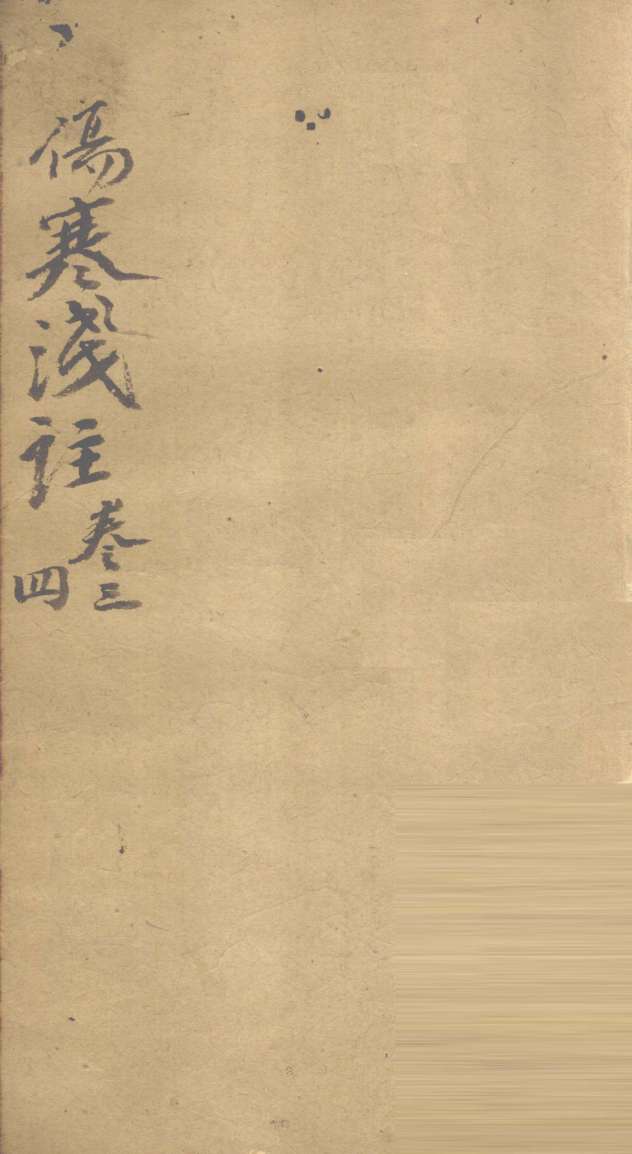 傷寒淺註
卷三
四